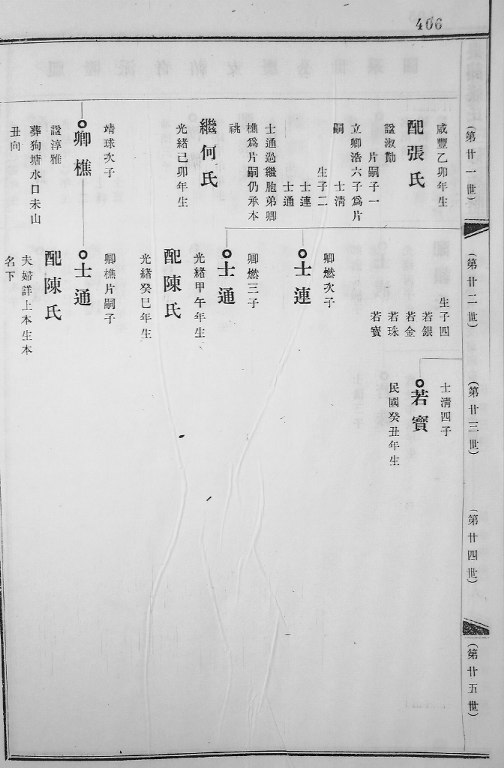 466
(第廿一世)
(第廿二世)
(第廿三世)
(第廿四世)
(第廿五世)
咸豐乙卯年生
配張氏
諡淑勤
片嗣子一
立卿浩六子爲片
嗣 士清
生子二
士連
士通
士通過繼胞弟卿
樵爲片嗣仍承本
祧
繼何氏
光緒己卯年生
靖球次子
卿樵
諡淳雅
葬狗塘水口未山
丑向
生子四
若銀
若金
若珠
若寶
卿燃次子
士連
卿燃三子
士通
光緒甲午年生
配陳氏
光緒癸巳年生
卿樵片嗣子
士通
配陳氏
夫婦詳上本生本
名下
士清四子
若寶
民國癸丑年生